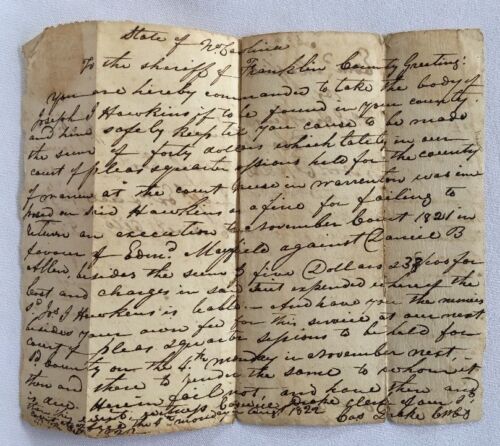 State of No. Carolina
To the sheriff of Franklin County Greeting:
You are hereby commanded to take the body of
Joseph J Hawkins if to be found in your county
and him safely keep til you cause to be made
the sum of forty dollars which lately in our
court of pleas & quarter sessions held for the county
of Warren at the court house in Warrenton was im
posed on said Hawkins as a fine for failing to
return an execution to November Court 1821 in
favour of Edmd. Mayfield against Daniel B
Allen, besides the sum of five Dollars 23/100 for
Cost and charges in said suit expended whereof the
sd. Jos. J Hawkins is liable - And have you the monies
besides your own fee for this service at our next
court of pleas & quarter sessions to be held for
sd county on the 4th. monday in November next, -
then and there to render the same to whom it
is due. Herein fail not, and have then and
there this writ. witness Drake Clerk of our sd
Court the 4th monday in Augt. 1822
Cas Drake CWCt